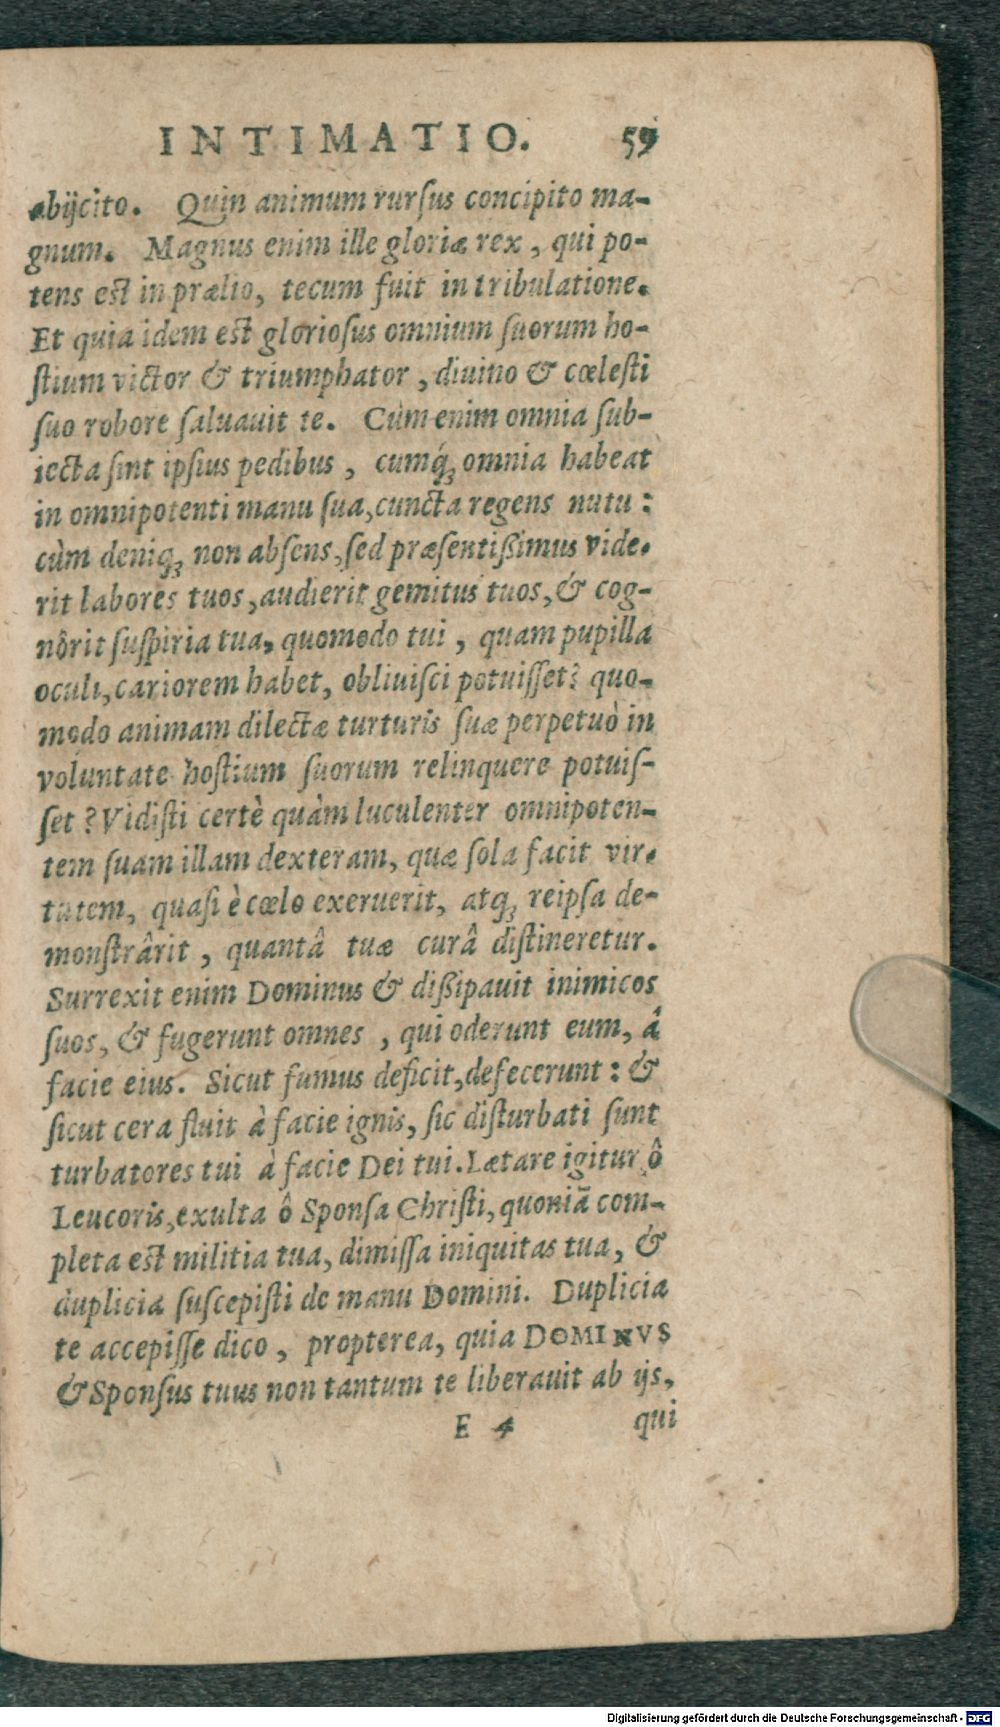 INTIMATIO. 59
abijcito. Quin animum rurſus concipito ma-
gnum. Magnus enim ille gloriæ rex, qui po-
tens est in prælio, tecum fuit in tribulatione.
Et quia idem est glorioſus omnium ſuorum ho-
ſtium victor & triumphator, diuino & cœleſti
ſuo robore ſaluauit te. Cùm enim omnia ſub-
iecta ſint ipſius pedibus, cumq́ꝫ omnia habeat
in omnipotenti manu ſua, cuncta regens nutu:
cùm deniqꝫ non abſens, ſed præſentißimus vide.
rit labores tuos, audierit gemitus tuos, & cog-
nôrit ſuſpiria tua, quomodo tui, quam pupilla
oculi, cariorem habet, obliuiſci potuiſſet? quo-
modo animam dilectæ turturis ſuæ perpetuò in
voluntate hoſtium ſuorum relinquere potuiſ-
ſet? Vidiſti certè quàm luculenter omnipoten-
tem ſuam illam dexteram, quæ ſola facit vir.
tutem, quaſi è cœlo exeruerit, atqꝫ reipſa de-
monſtrârit, quantâ tuæ curâ diſtineretur.
Surrexit enim Dominus & dißipauit inimicos
ſuos, & fugerunt omnes, qui oderunt eum, â
facie eius. Sicut fumus deficit, defecerunt: &
ſicut cera fluit à facie ignis, ſic diſturbati ſunt
turbatores tui à facie Dei tui. Lætare igitur ô
Leucoris, exulta ô Sponſa Chriſti, quoniã com-
pleta est militia tua, dimiſſa iniquitas tua, &
duplicia ſuſcepiſti de manu Domini. Duplicia
te accepiſſe dico, propterea, quia DOMINVS
& Sponſus tuus non tantum te liberauit ab ijs,
E 4 qui
Digitalisierung gefördert durch die Deutsche Forschungsgemeinschaft - DFG